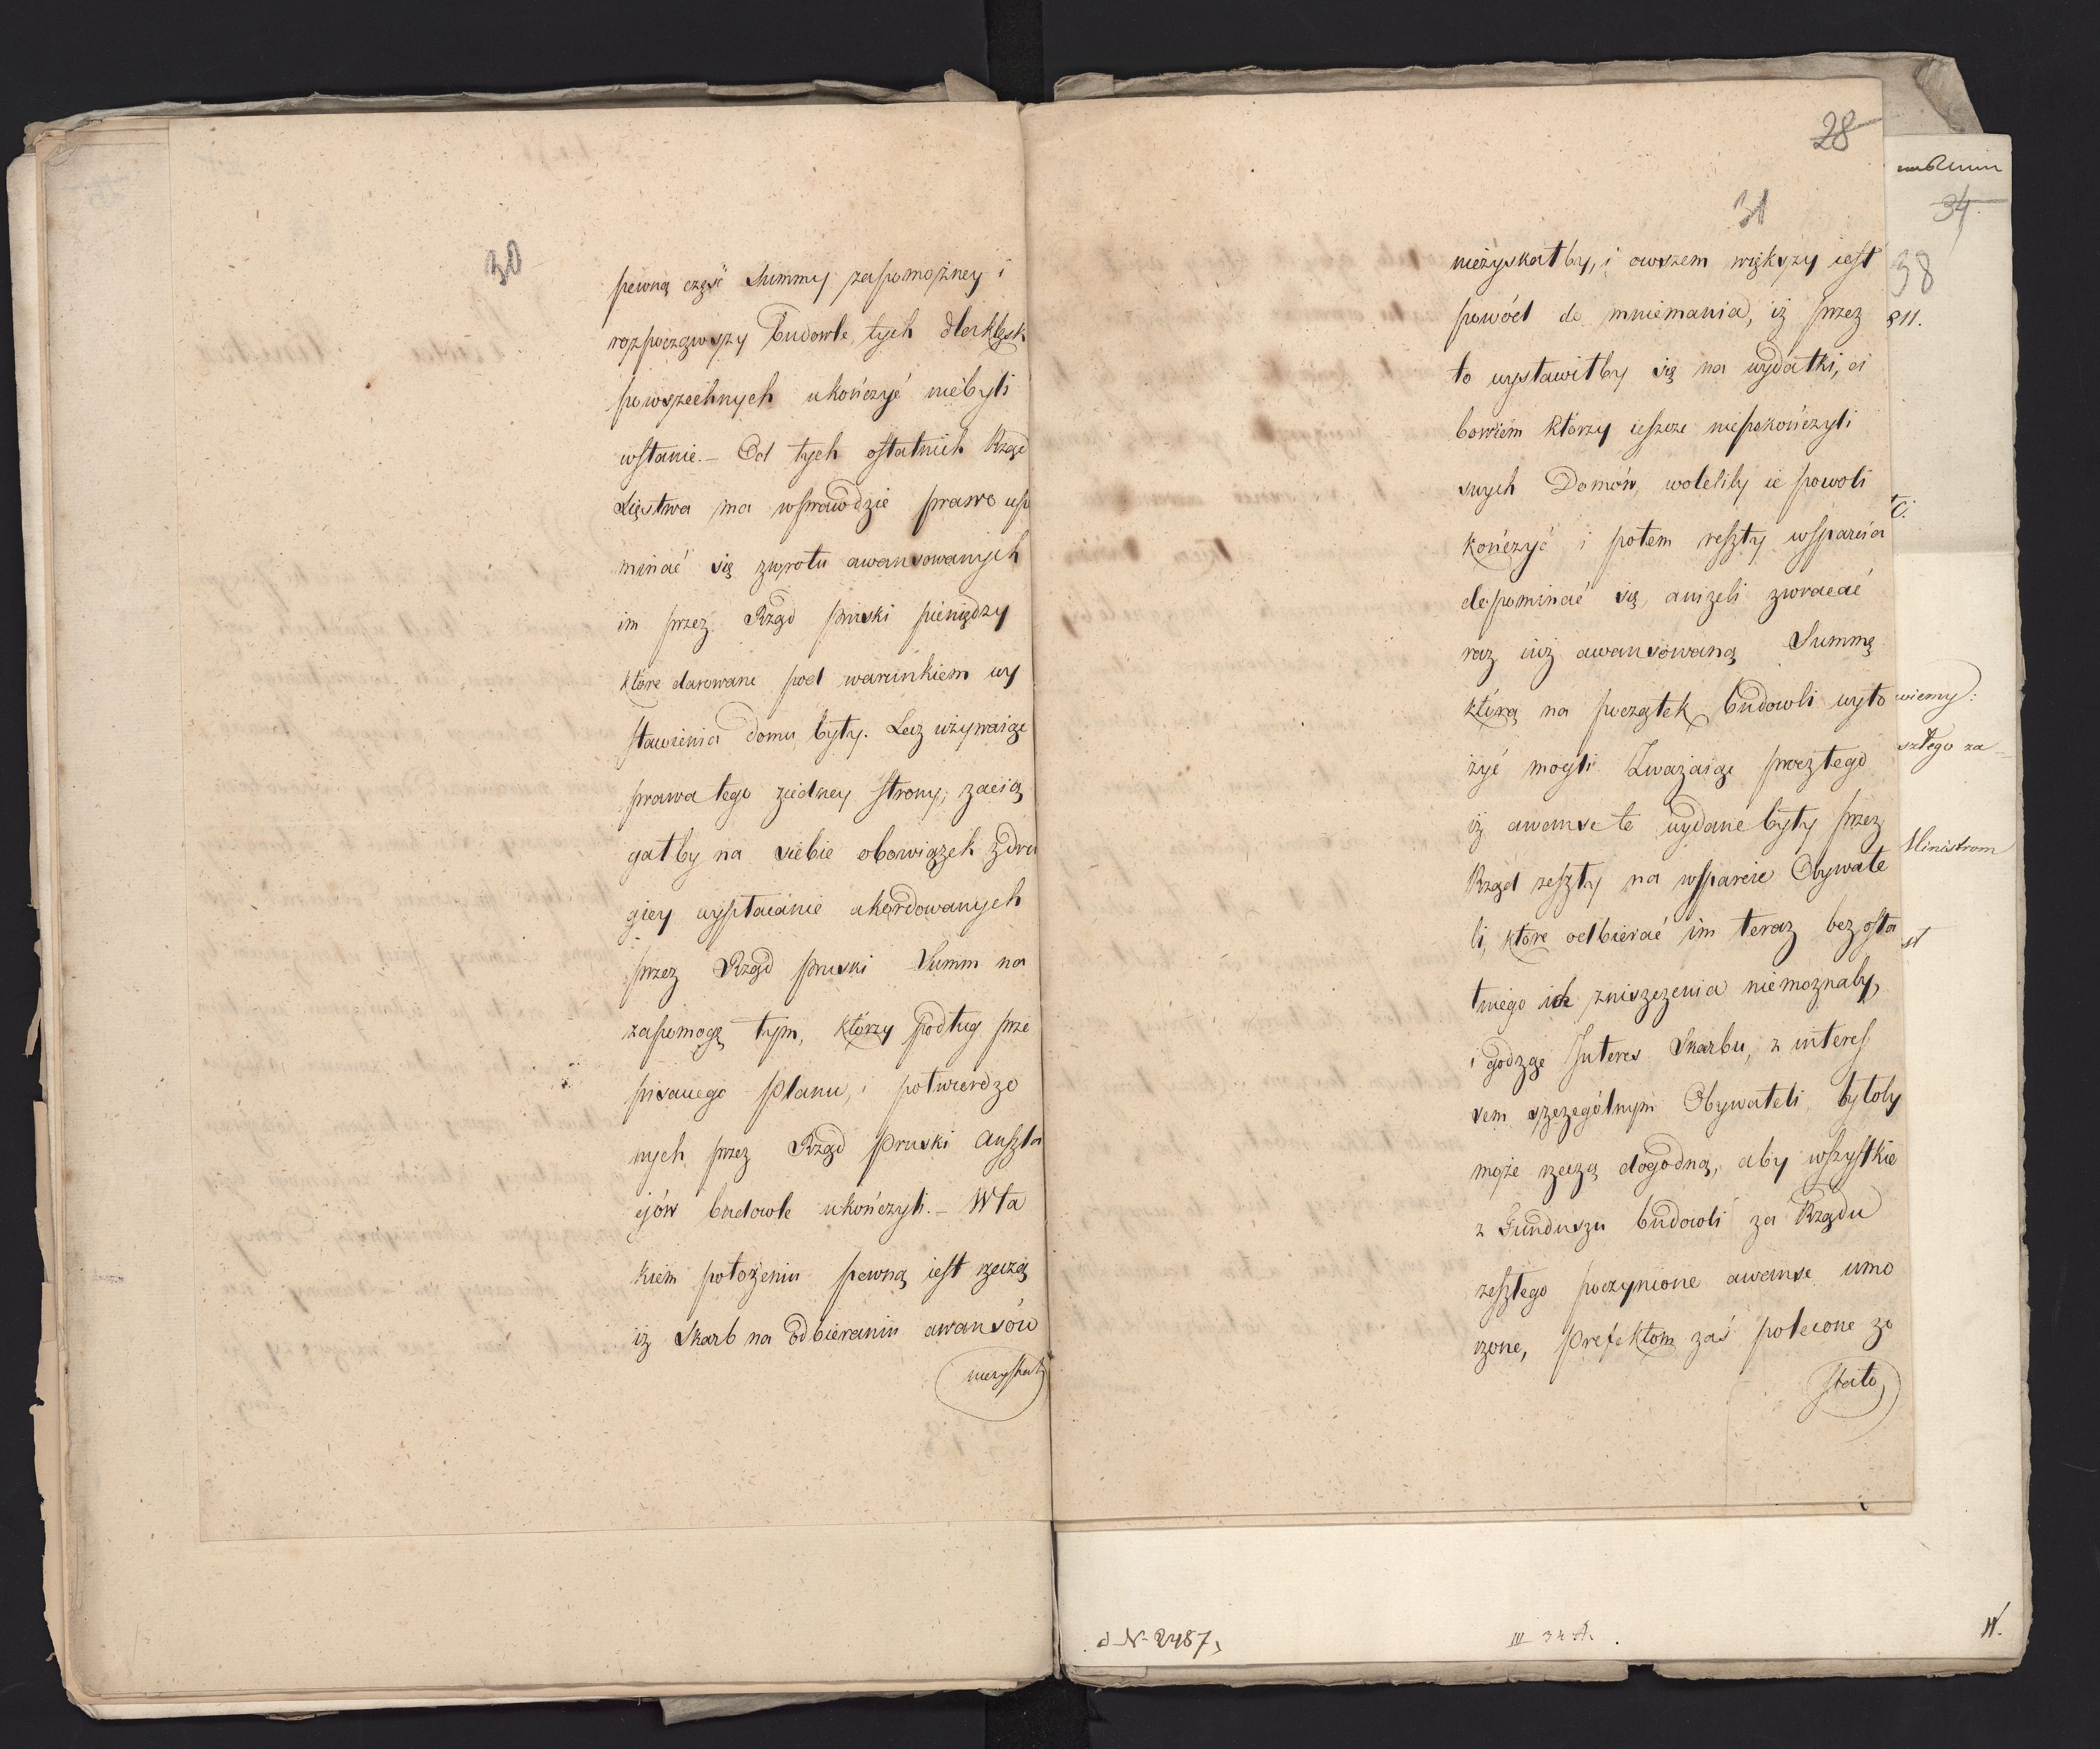 30
pewną część Summy zapomożney i
rozpocząwszy budowle, tych dla klęsk
powszechnych ukończyć niebyli
wstanie. – Od tych ostatnich Rząd
Xięstwa ma wprawdzie prawo upo
minać się zwrotu awansowanych
im przez Rząd pruski pieniędzy
które darowane pod warunkiem wy
stawienia domu były. Lecz używaiąc
prawa tego ziedney strony, zacią
gałby na siebie obowiązek zdru
giey wypłacanie akordowanych
przez Rząd pruski Summ na
zapomogę tym, którzy podług prze
pisanego planu, i potwierdzo
nych przez Rząd Pruski Anszla
gów budowle ukończyli. – W ta
kiem położeniu pewną iest rzeczą
iż Skarb na odbieraniu awansów
niezyskał
28
31
niezyskałby, i owszem większy iest
powód do mniemania, iż przez
to wystawiłby się na wydatki, ci
bowiem którzy ieszcze niepokończyli
swych Domów, woleliby ie powoli
kończyć i potem reszty wsparcia
dopominać się, aniżeli zwracać
raz iuż awansowaną Summę
którą na początek budowli wyło
żyć mogli Zważaiąc prócztego
iż awanse te wydane były przez
Rząd zeszły na wsparcie Obywate
li, które odbierać im teraz bez osta
tniego ich zniszczenia niemożnaby,
i godząc Interes Skarbu, z interes
sem szczególnym Obywateli, byłoby
może rzeczą dogodną, aby wszystkie
z Funduszu budowli za Rządu
zeszłego poczynione awanse umo
rzone, Prefektom zaś polecone zo
stało
34.
38
811.
wiemy:
szłego za=
Ministrom
st
d. N. 2487,
III 34 A.